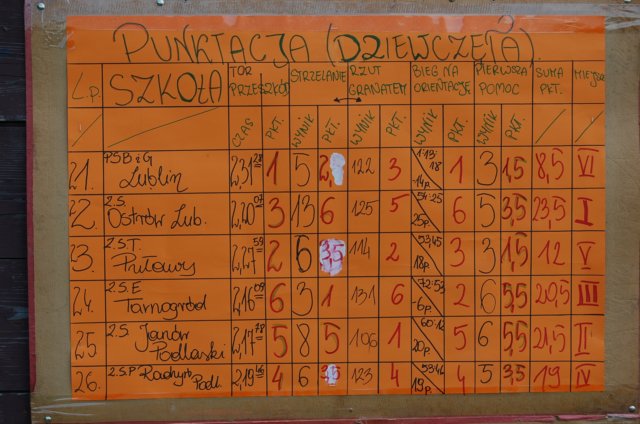 PUNKTACJA (DZIEWCZĘTA).
Lp. SZKOŁA TOR PRZESZKÓD STRZELANIE RZUT GRANATEM BIEG NA ORIENTACJE PIERWSZA POMOC SUMA PKT. MIEJSCE
CZAS PKT. WYNIK PKT. WYNIK PKT. WYNIK PKT. WYNIK PKT.
21. PSB i G Lublin 2,31 28 1 5 2, 122 3 1:13:18 14p. 1 3 1,5 8,5 VI
22. Z.S. Ostrów Lub. 2,20 07 3 13 6 125 5 54:25 25p. 6 5 3,5 23,5 I
23. Z.S.T. 2,27 59 2 6 3,5 114 2 53,45 18p. 3 3 1,5 12 V
24. Z.S.E Tarnogród 2,16 09 6 3 1 131 6 72:53 -6p. 2 6 5,5 20,5 III
25 Z.S Janów Podlaski 2,17 78 5 8 5 106 1 60:12 20p. 5 6 5,5 21,5 II
26. Z.S.P. Podl. 2,19 46 4 6 3,5 123 4 53:44 19p. 4 5 3,5 19 IV